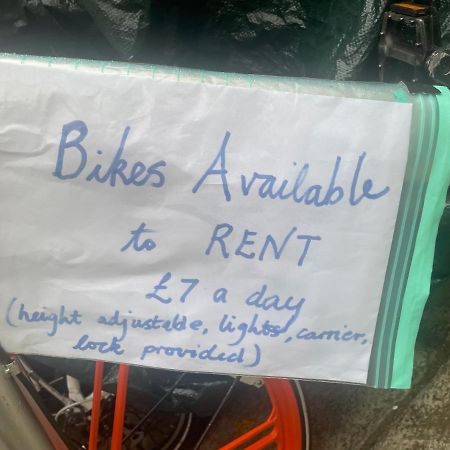 Bikes Available
to RENT
£7 a day
(height adjustable, lights, carrier,
lock provided)